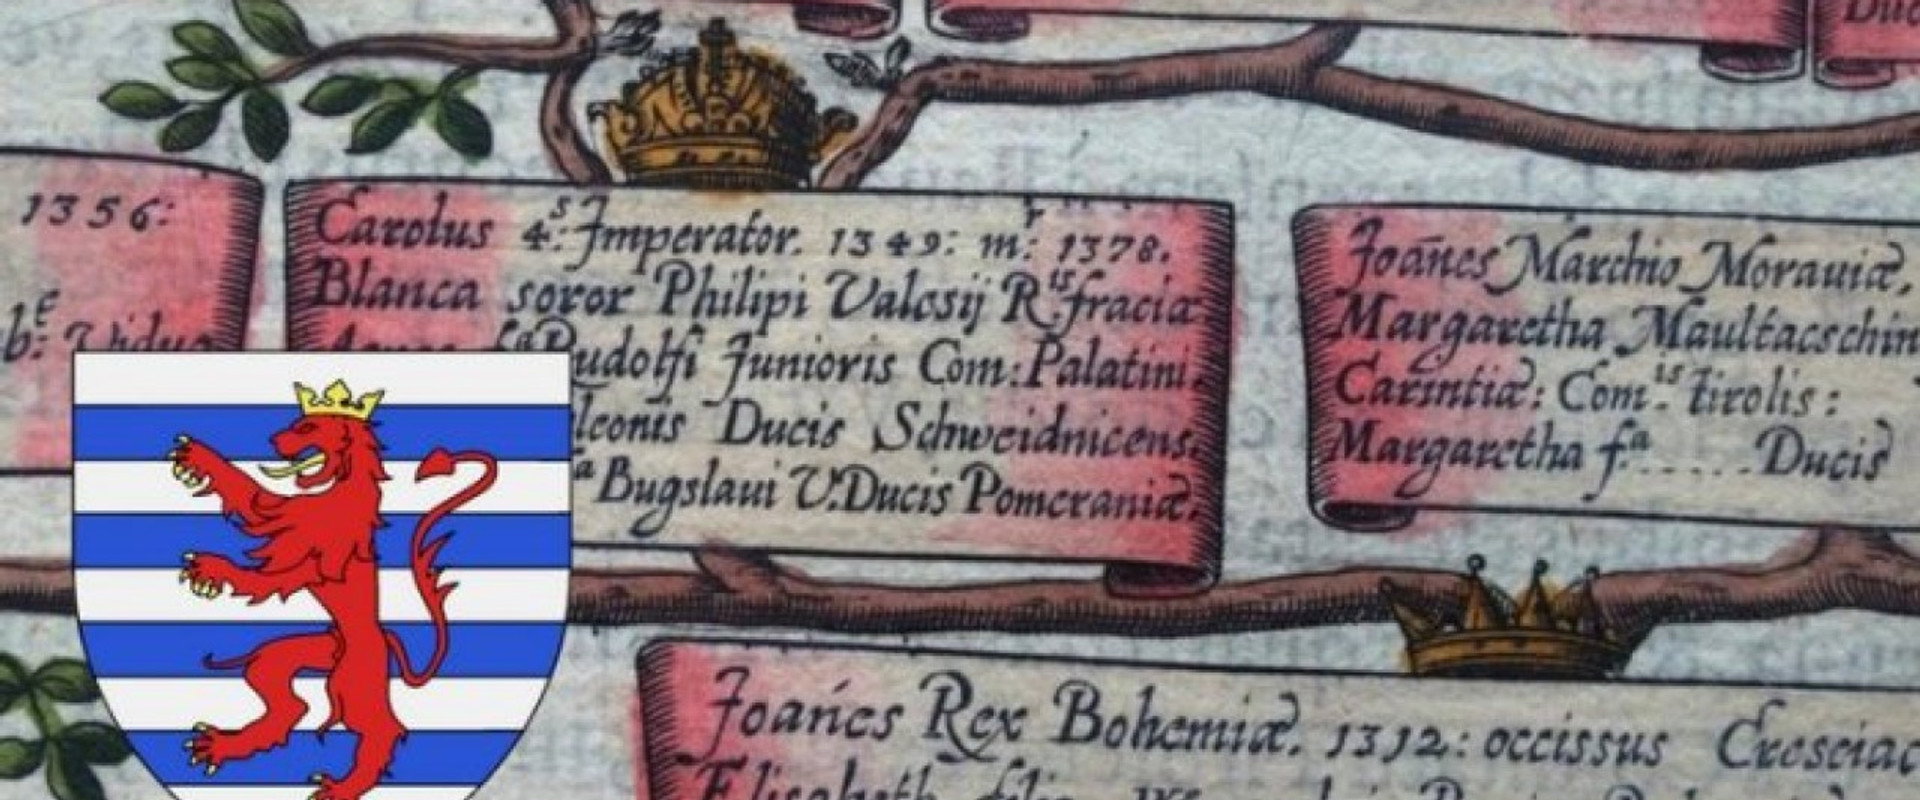 Duc
1356:
b:e Vidua
Carolus 4:s Imperator. 1349: m:r 1378.
Blanca soror Philipi Valesij R:is fraciæ
fa Rudolfi Junioris Com: Palatini.
lconis Ducis Schweidnicens.
fa Bugslaui V. Ducis Pomeraniæ.
Joānes Marchio Morauiæ,
Margaretha Maultacschin
Carintiæ: Com:is tirolis:
Margaretha fa ...... Ducis
Joańes Rex Bohemiæ. 1312: occissus Creseiac
Elisabeth filia